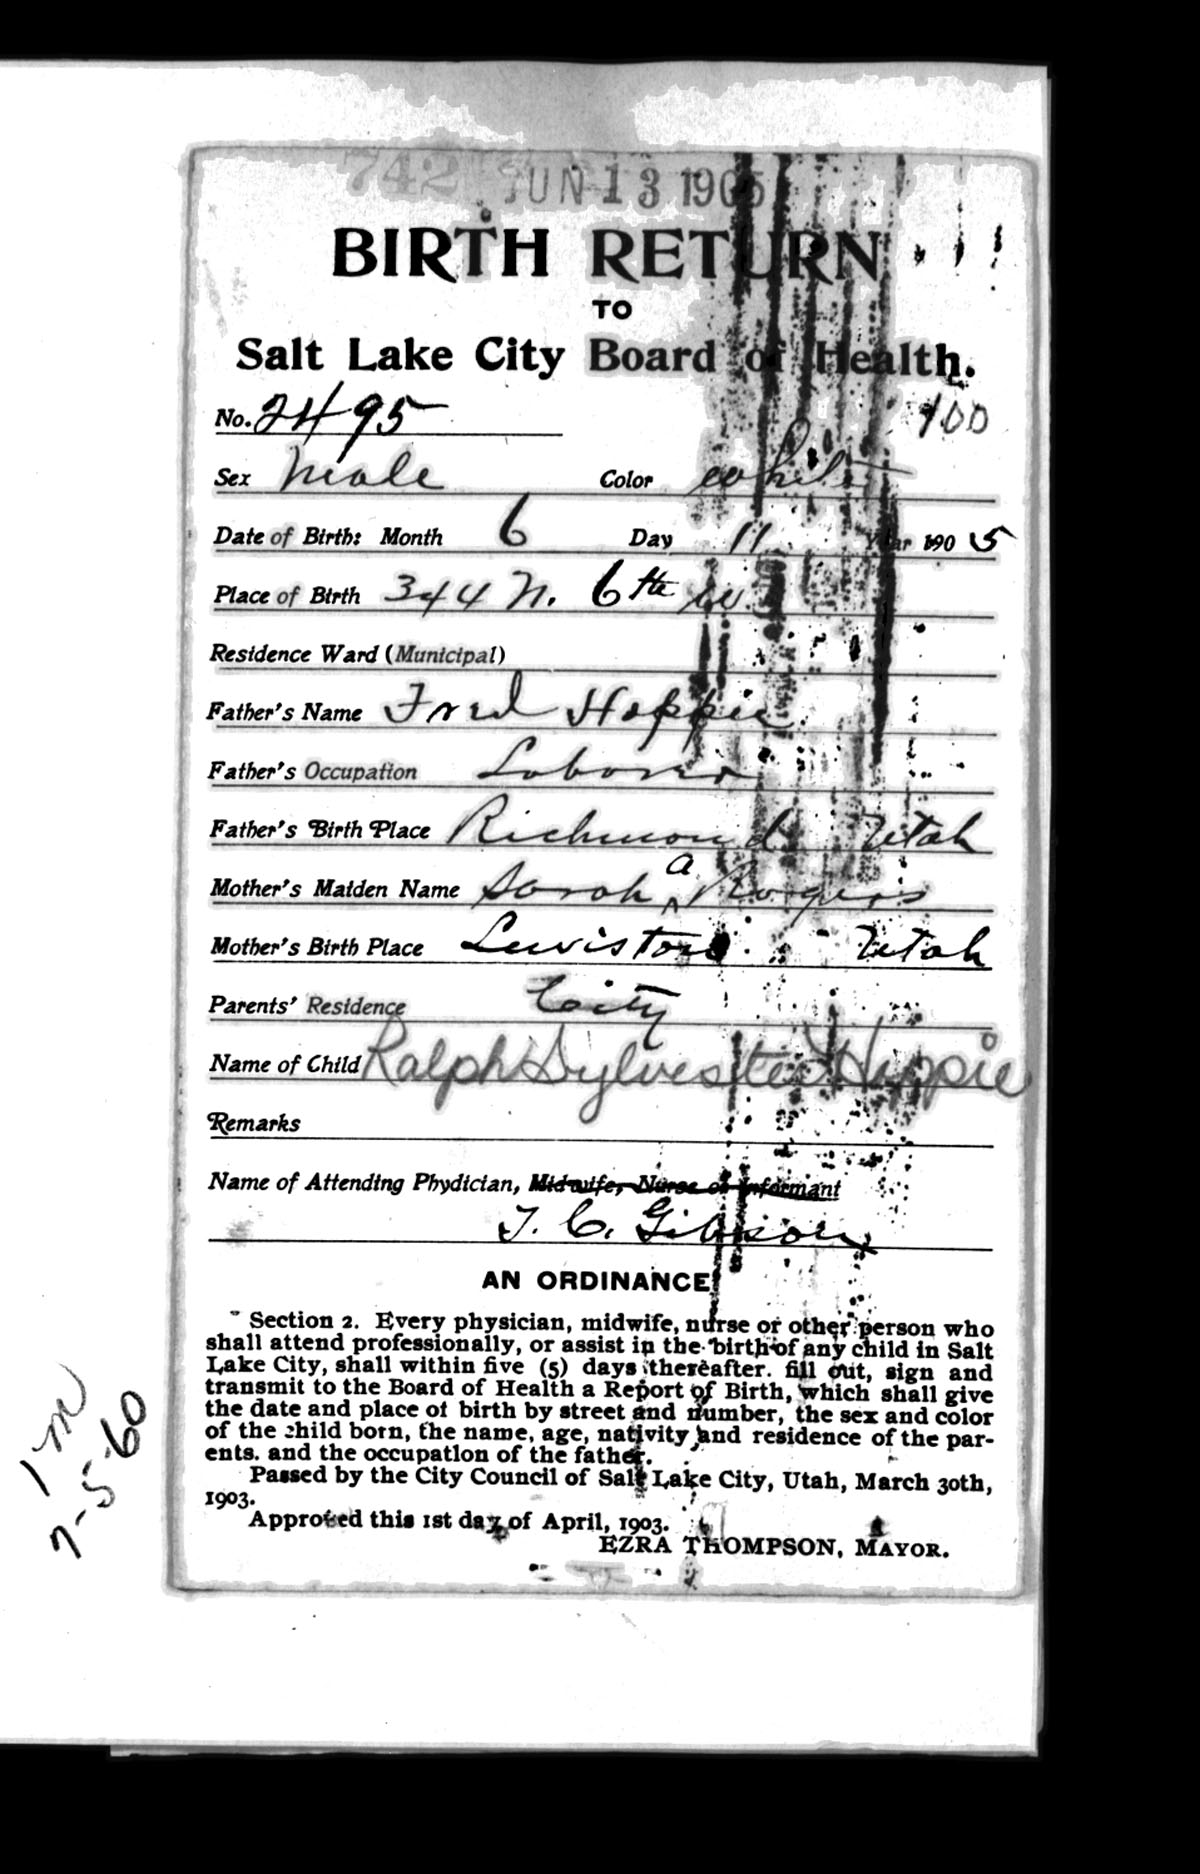 742 JUN 13 1905
BIRTH RETURN
TO
Salt Lake City Board of Health.
100
No. 2495
Sex Male Color white
Date of Birth: Month 6 Day 11 Year 1905
Place of Birth 344 N. 6th W
Residence Ward (Municipal)
Father's Name Fred Hoppie
Father's Occupation Laborer
Father's Birth Place Richmond Utah
Mother's Maiden Name Sarah A Rogers
Mother's Birth Place Lewiston Utah
Parents' Residence City
Name of Child Ralph Sylvester Hippie
Remarks
Name of Attending Phydician, Midwife, Nurse or Informant
T. C. Gibson
AN ORDINANCE
Section 2. Every physician, midwife, nurse or other person who
shall attend professionally, or assist in the birth of any child in Salt
Lake City, shall within five (5) days thereafter. fill out, sign and
transmit to the Board of Health a Report of Birth, which shall give
the date and place of birth by street and number, the sex and color
of the child born, the name, age, nativity and residence of the par-
ents. and the occupation of the father.
Passed by the City Council of Salt Lake City, Utah, March 30th,
1903.
Approved this 1st day of April, 1903.
EZRA THOMPSON, MAYOR.
1 m
7-5-60